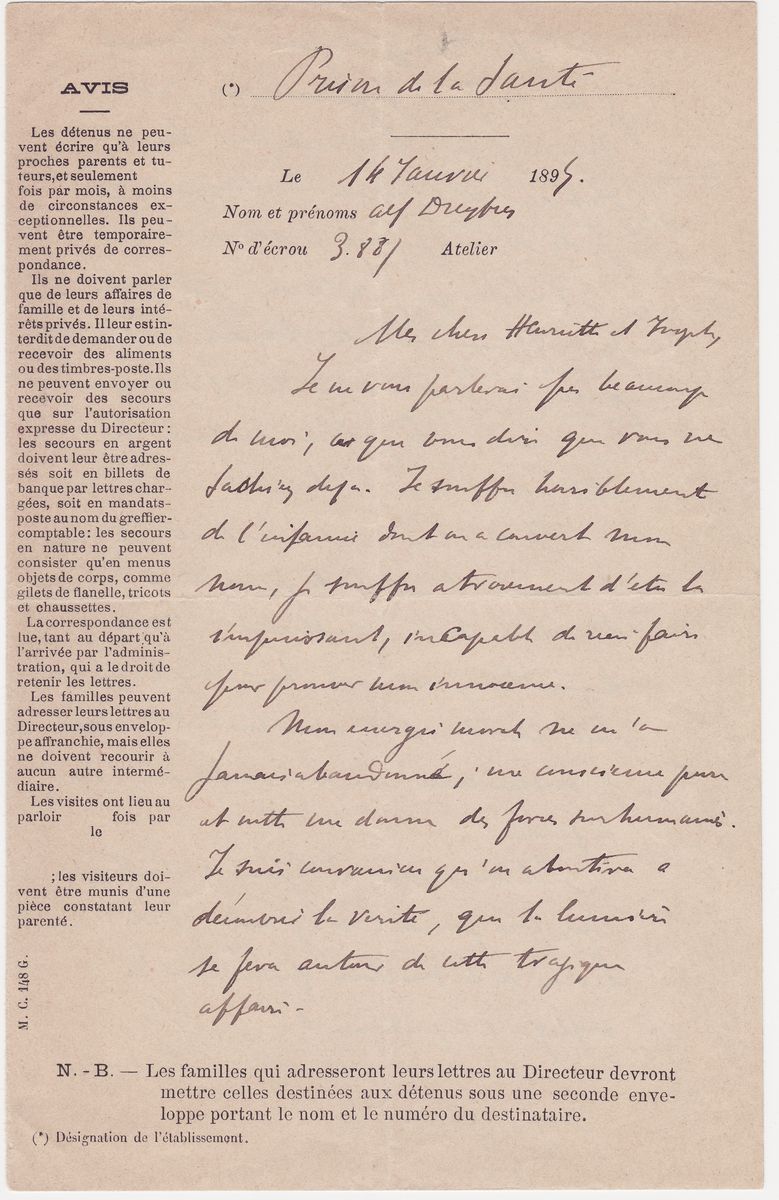 AVIS
Les détenus ne peu-
vent écrire qu'à leurs
proches parents et tu-
teurs, et seulement
fois par mois, à moins
de circonstances ex-
ceptionnelles. Ils peu-
vent être temporaire-
ment privés de corres-
pondance.
Ils ne doivent parler
que de leurs affaires de
famille et de leurs inté-
rêts privés. Il leur est in-
terdit de demander ou de
recevoir des aliments
ou des timbres-poste. Ils
ne peuvent envoyer ou
recevoir des secours
que sur l'autorisation
expresse du Directeur :
les secours en argent
doivent leur être adres-
sés soit en billets de
banque par lettres char-
gées, soit en mandats-
poste au nom du greffier-
comptable : les secours
en nature ne peuvent
consister qu'en menus
objets de corps, comme
gilets de flanelle, tricots
et chaussettes.
La correspondance est
lue, tant au départ qu'à
l'arrivée par l'adminis-
tration, qui a le droit de
retenir les lettres.
Les familles peuvent
adresser leurs lettres au
Directeur, sous envelop-
pe affranchie, mais elles
ne doivent recourir à
aucun autre intermé-
diaire.
Les visites ont lieu au
parloir fois par
le
; les visiteurs doi-
vent être munis d'une
pièce constatant leur
parenté.
M. C. 148 G.
(*) Prison de la Santé
Le 14 Janvier 1895.
Nom et prénoms Alf Dreyfus
N° d'écrou 3.88 Atelier
Mes chers Henriette et Joseph,
Je ne vous parlerai pas beaucoup
de moi, car que vous dire que vous ne
sachiez deja. Je souffre horriblement
de l'infamie dont on a couvert mon
nom, je souffre atrocement d'etre la
impuissant, incapable de rien faire
pour prouver mon innocence.
Mon energie morale ne m'a
jamais abandonné ; une conscience pure
et nette me donne des forces surhumaines.
Je suis convaincu qu'on aboutira a
découvrir la verite, que la lumière
se fera autour de cette tragique
affaire -
N. - B. — Les familles qui adresseront leurs lettres au Directeur devront
mettre celles destinées aux détenus sous une seconde enve-
loppe portant le nom et le numéro du destinataire.
(*) Désignation de l'établissement.